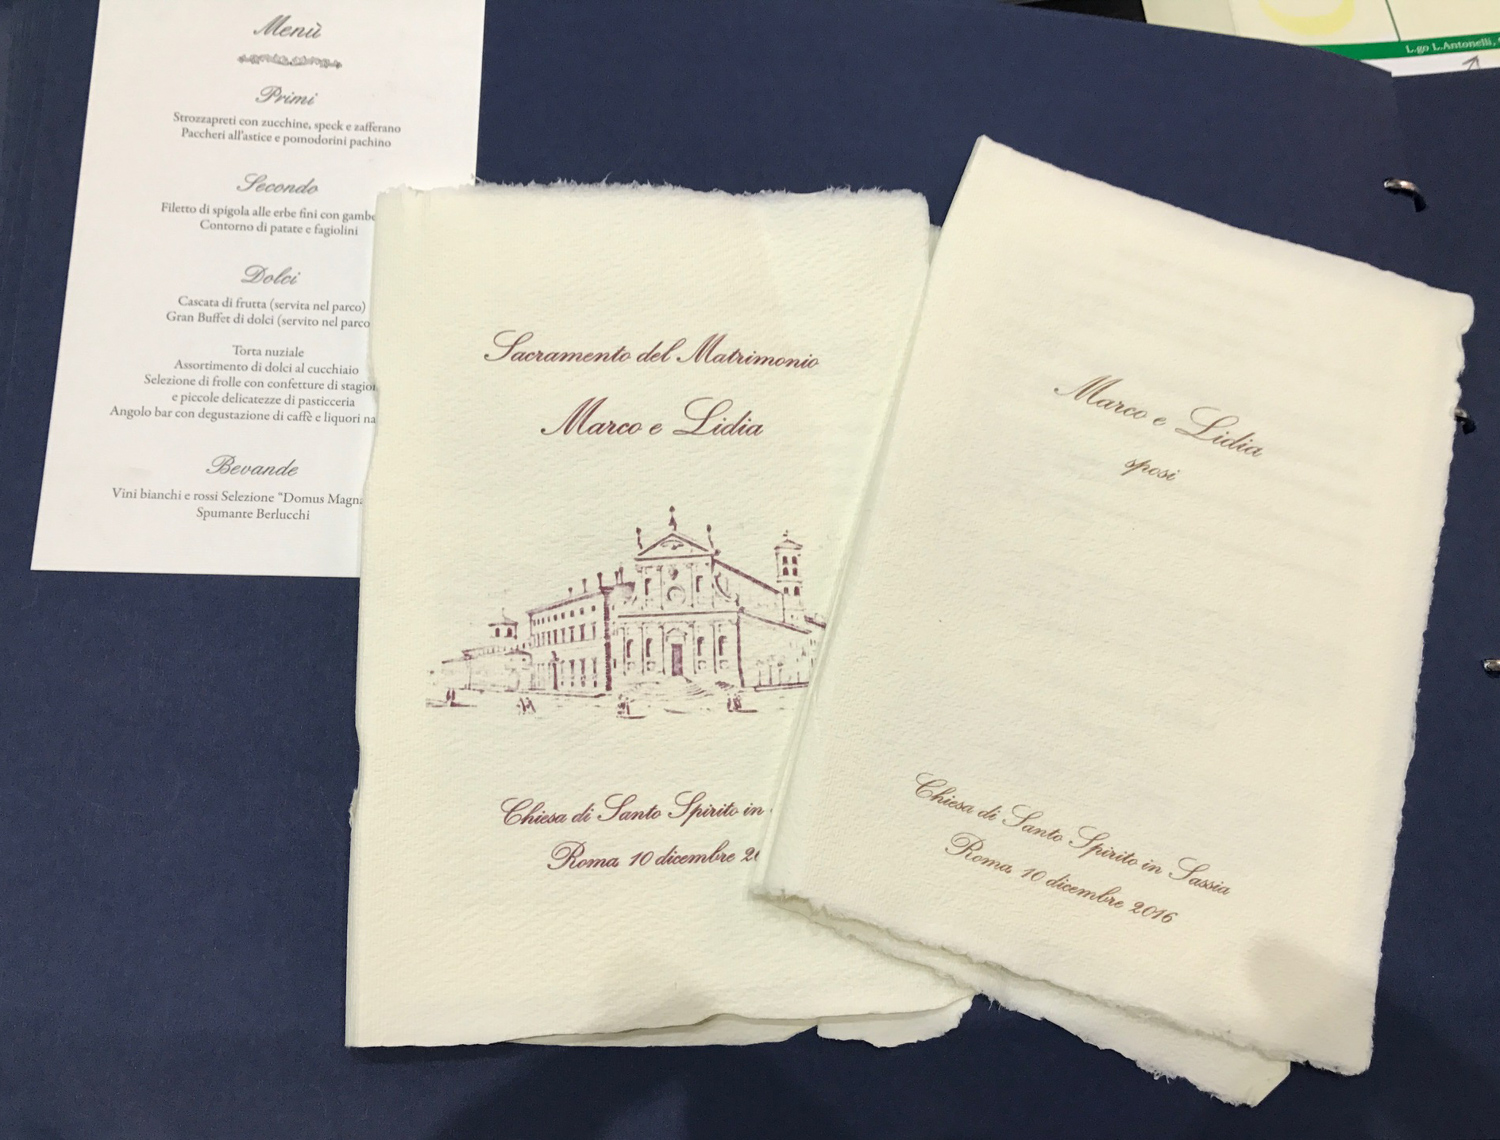 Menù
Primi
Strozzapreti con zucchine, speck e zafferano
Paccheri all'astice e pomodorini pachino
Secondo
Filetto di spigola alle erbe fini con
Contorno di patate e fagiolini
Dolci
Cascata di frutta (servita nel parco)
Gran Buffet di dolci (servito nel parco
Torta nuziale
Assortimento di dolci al cucchiaio
Selezione di frolle con confetture di
e piccole delicatezze di pasticceria
Angolo bar con degustazione di caffè e liquori
Bevande
Vini bianchi e rossi Selezione "Domus
Spumante Berlucchi
Sacramento del Matrimonio
Marco e Lidia
Chiesa di Santo Spirito in
Roma, 10 dicembre
Marco e Lidia
sposi
Chiesa di Santo Spirito in Sassia
Roma, 10 dicembre 2016
L.go L.Antonelli,